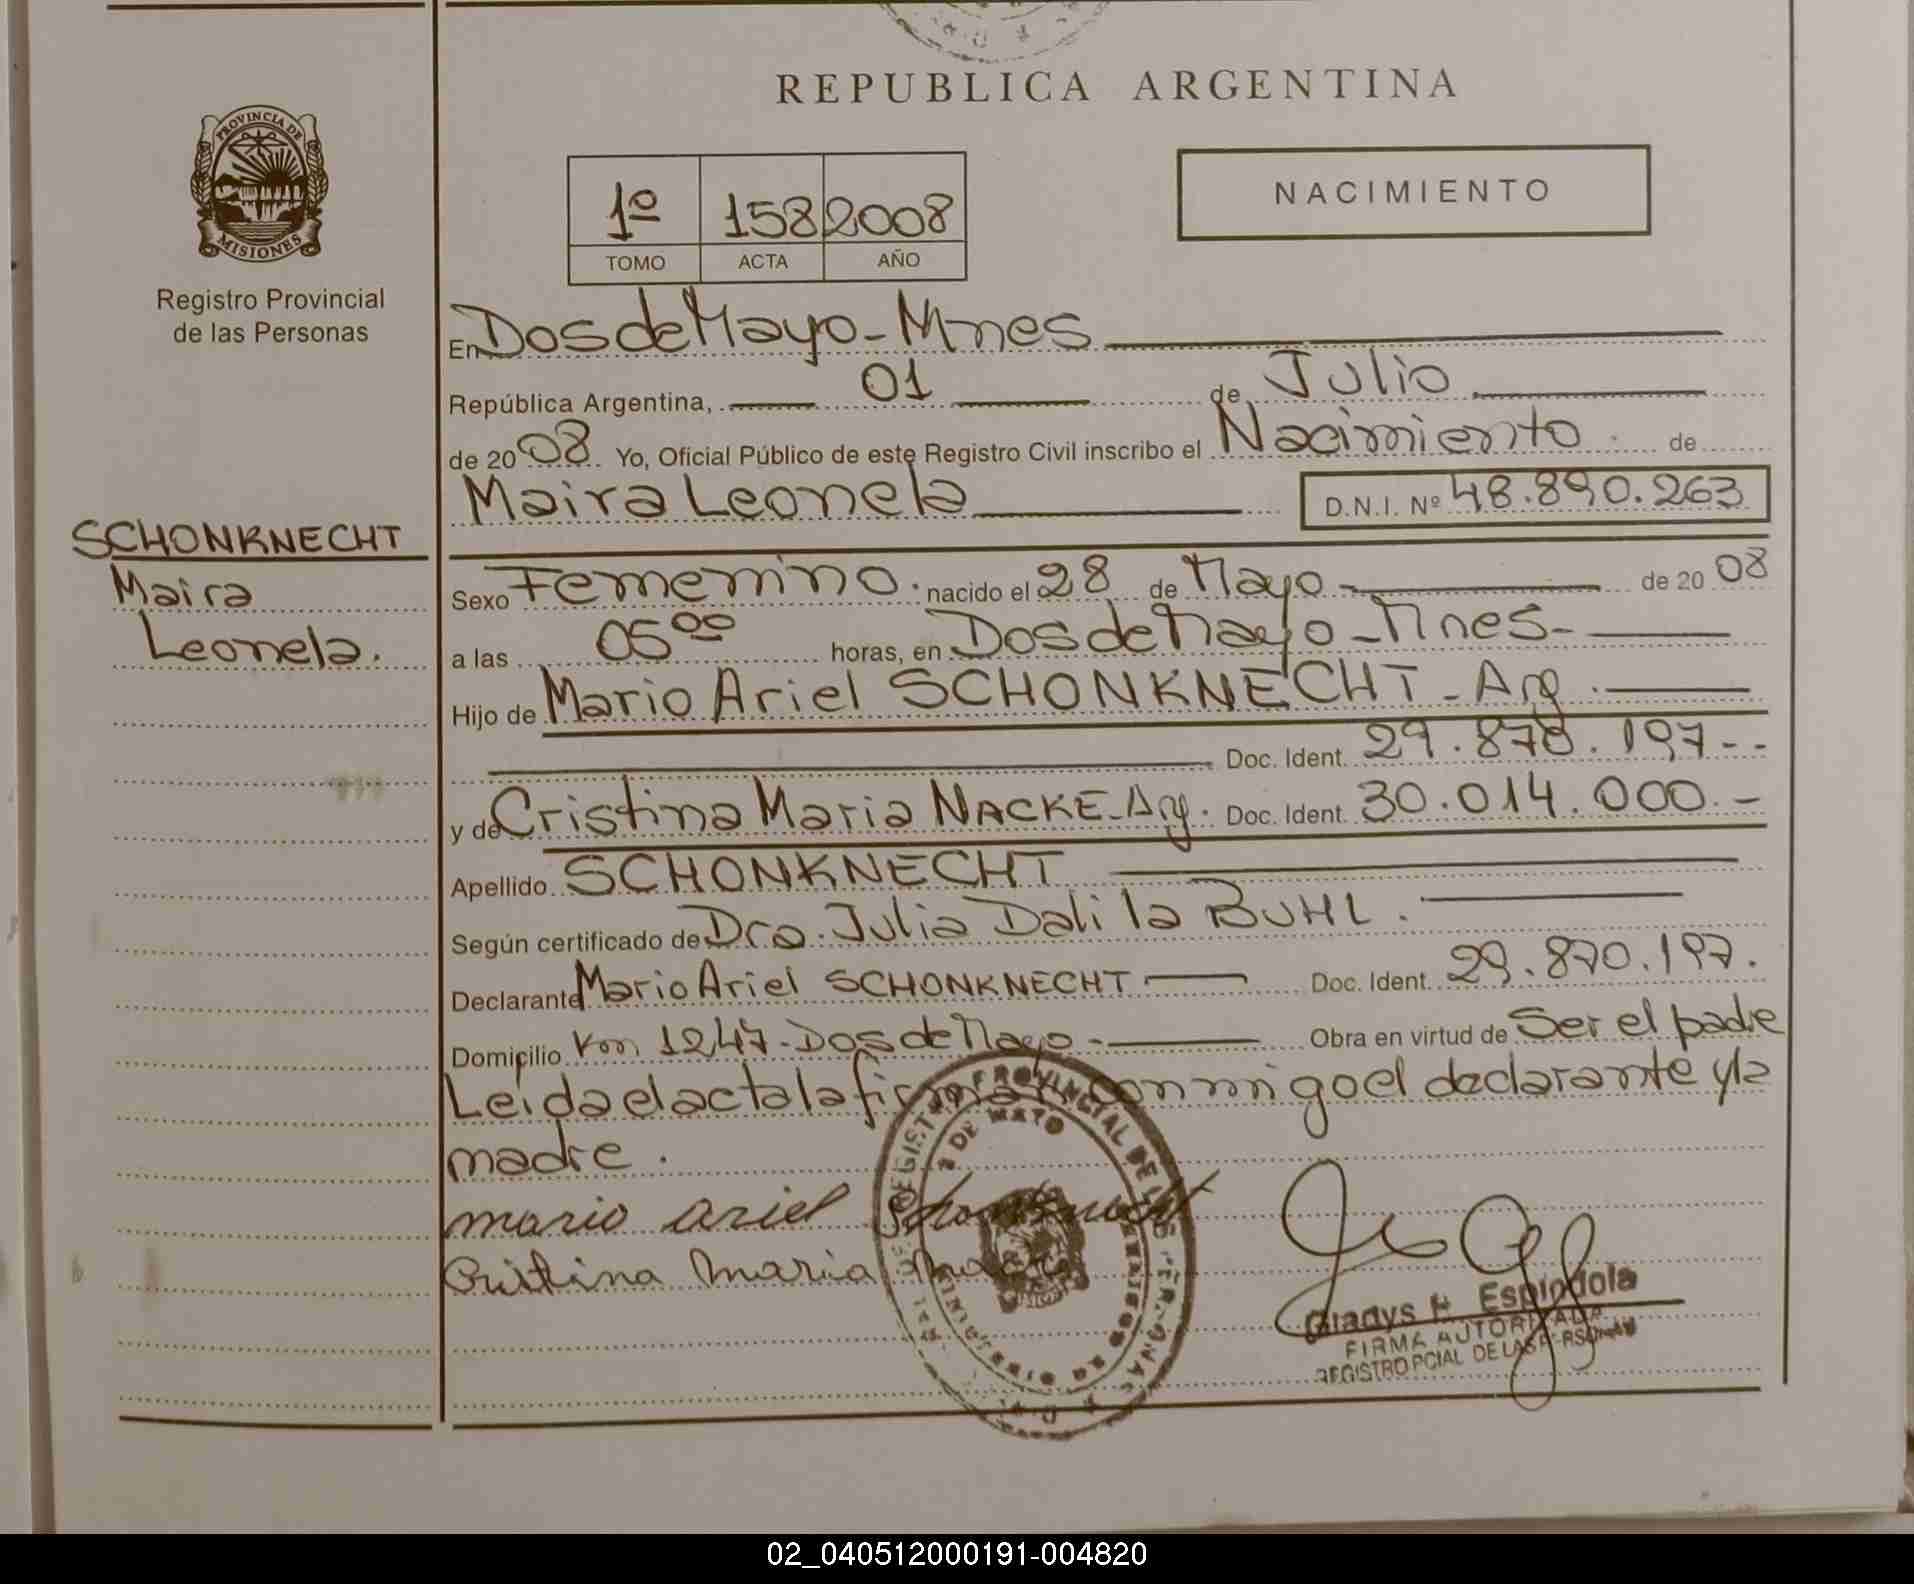 REPUBLICA ARGENTINA
PROVINCIA DE
MISIONES
Registro Provincial
de las Personas
NACIMIENTO
1º 158 2008
TOMO ACTA AÑO
En Dos de Mayo - Mnes
República Argentina, 01 de Julio
de 20 08 Yo, Oficial Público de este Registro Civil inscribo el Nacimiento. de
Maira Leonela D.N.I. Nº 48.890.263
SCHONKNECHT
Maira
Leonela.
Sexo Femenino. nacido el 28 de Mayo de 20 08
a las 05 00 horas, en Dos de Mayo - Mnes -
Hijo de Mario Ariel SCHONKNECHT - Arg.
Doc. Ident. 29.870.197--
y de Cristina Maria NACKE - Arg. Doc. Ident. 30.014.000.-
Apellido SCHONKNECHT
Según certificado de Dra. Julia Dalila BUHL.
Declarante Mario Ariel SCHONKNECHT Doc. Ident. 29.870.197.
Domicilio Km 1247 - Dos de Mayo - Obra en virtud de Ser el padre
Leida el acta la firman conmigo el declarante y la
madre.
mario ariel Schonknecht
Cristina Maria
REGISTRO PROVINCIAL DE LAS PERSONAS
2 DE MAYO
Gladys H. Espindola
FIRMA AUTORIZADA
REGISTRO PCIAL DE LAS PERSONAS
02_040512000191-004820